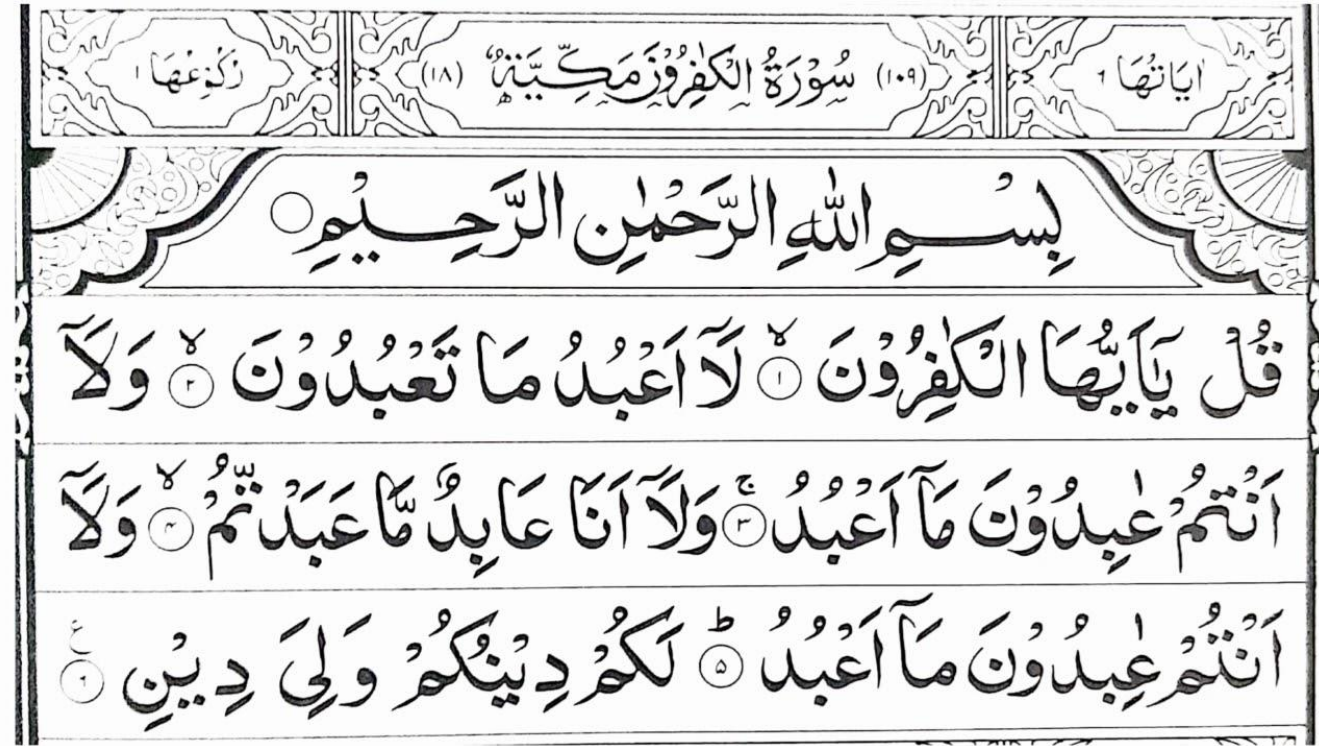 اٰيَاتُهَا ٦ (١٠٩) سُوْرَةُ الْكٰفِرُوْنَ مَكِّيَّةٌ (١٨) رُكُوْعُهَا ١
بِسْمِ اللّٰهِ الرَّحْمٰنِ الرَّحِيْمِ
قُلْ يٰۤاَيُّهَا الْكٰفِرُوْنَ ۙ‏﴿۱﴾ لَاۤ اَعْبُدُ مَا تَعْبُدُوْنَ ۙ‏﴿۲﴾ وَلَاۤ
اَنْتُمْ عٰبِدُوْنَ مَاۤ اَعْبُدُ ۚ‏﴿۳﴾ وَلَاۤ اَنَا عَابِدٌ مَّا عَبَدْتُّمْ ۙ‏﴿۴﴾ وَلَاۤ
اَنْتُمْ عٰبِدُوْنَ مَاۤ اَعْبُدُ ؕ‏﴿۵﴾ لَكُمْ دِيْنُكُمْ وَلِىَ دِيْنِ ﴿۶﴾ ع